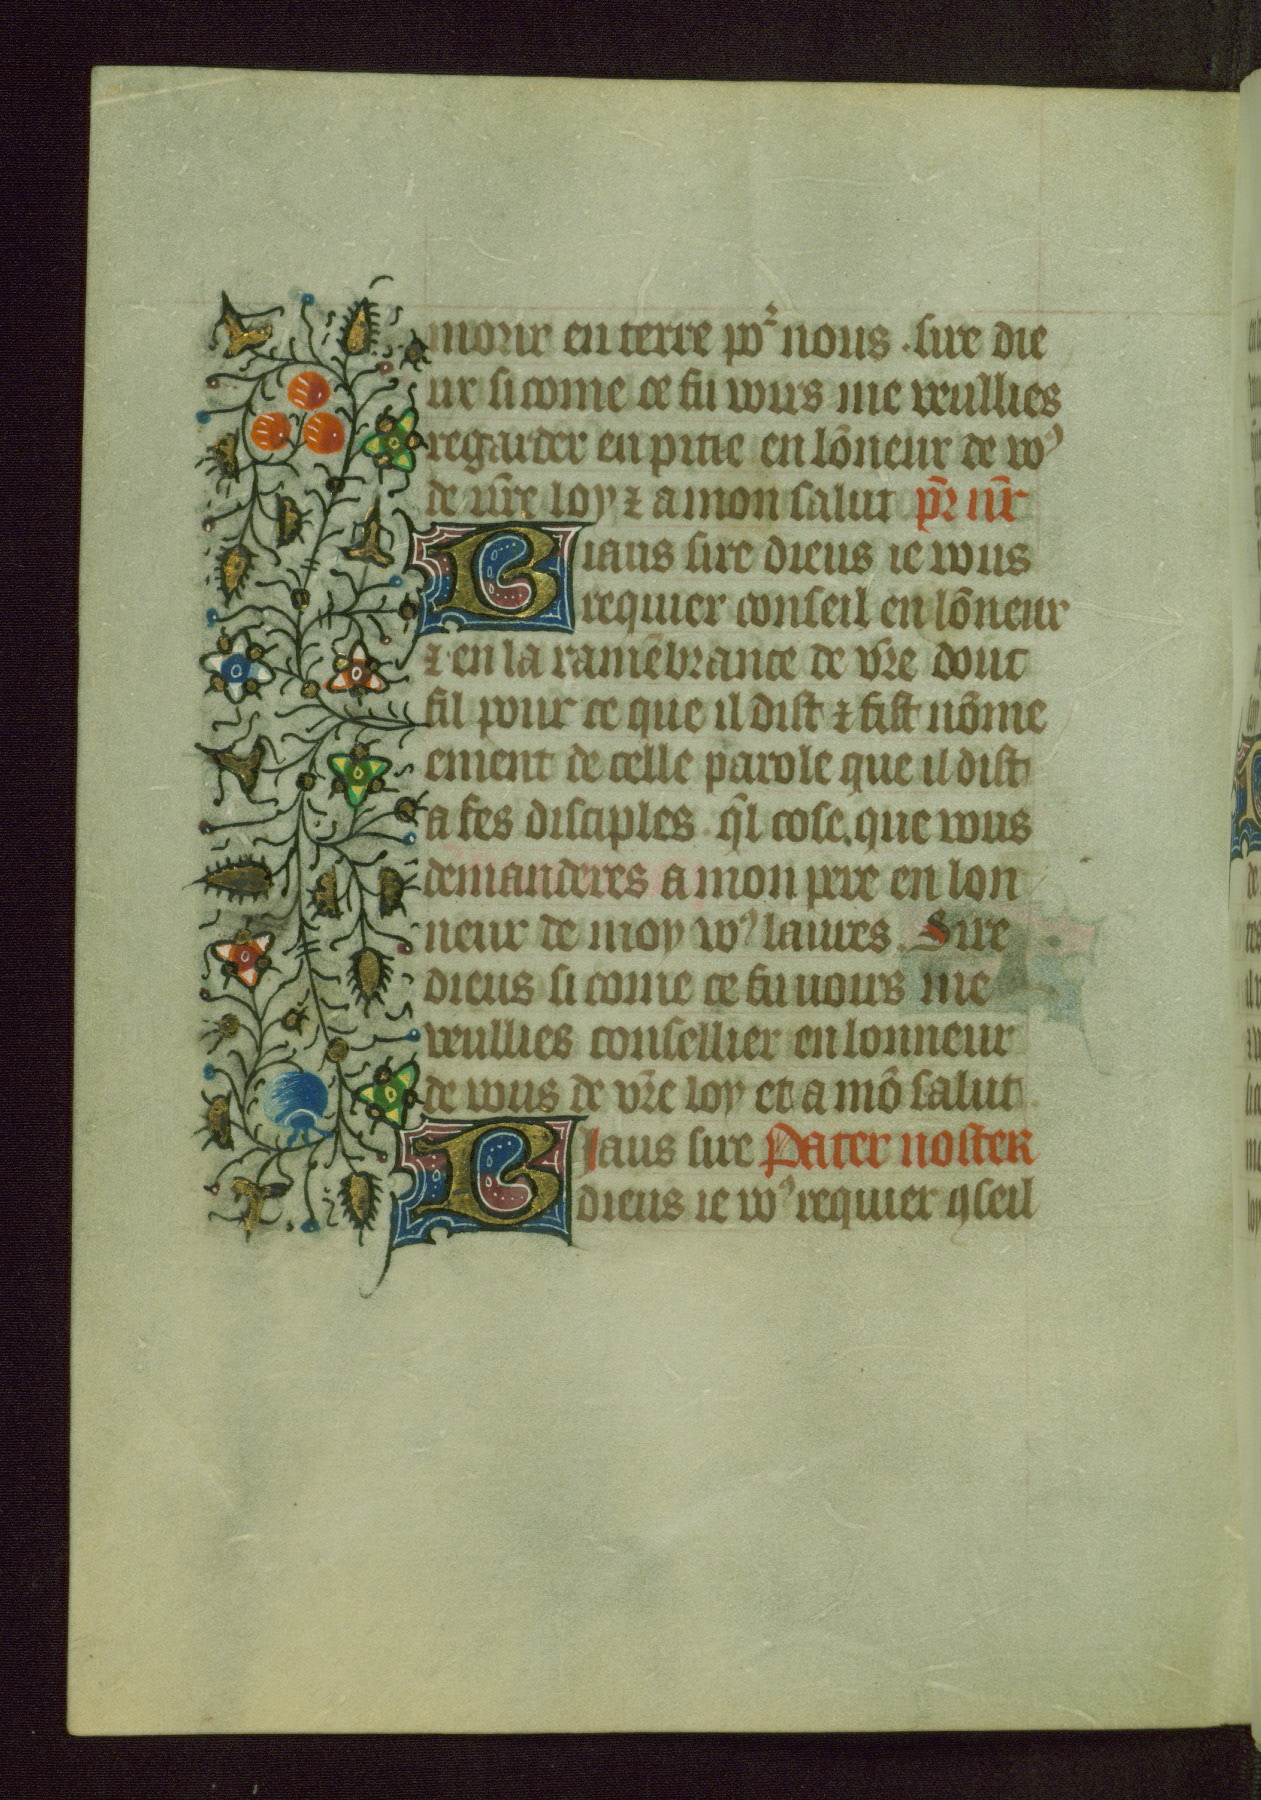 morir en terre poᷣ nous . sire die
ux si come ce fu vous me veullies
regarder en pitie en lōneur de voꝰ
de vr̄e loy ⁊ a mon salut pr̄ nr̄
Biaus sire dieus ie vous
requier conseil en lōneur
⁊ en la ramēbrance de vr̄e dout
fil pour ce que il dist ⁊ fist nōme
ement de celle parole que il dist
a ses disciples . ql̄ cose . que vous
demanderes a mon pere en lon
neur de moy voꝰ laures . Sire
dieus si come ce fu vours me
veullies consellier en lonneur
de vous de vr̄e loy et a mō salut .
Biaus sire Pater noster
dieus ie voꝰ requier ꝯseil